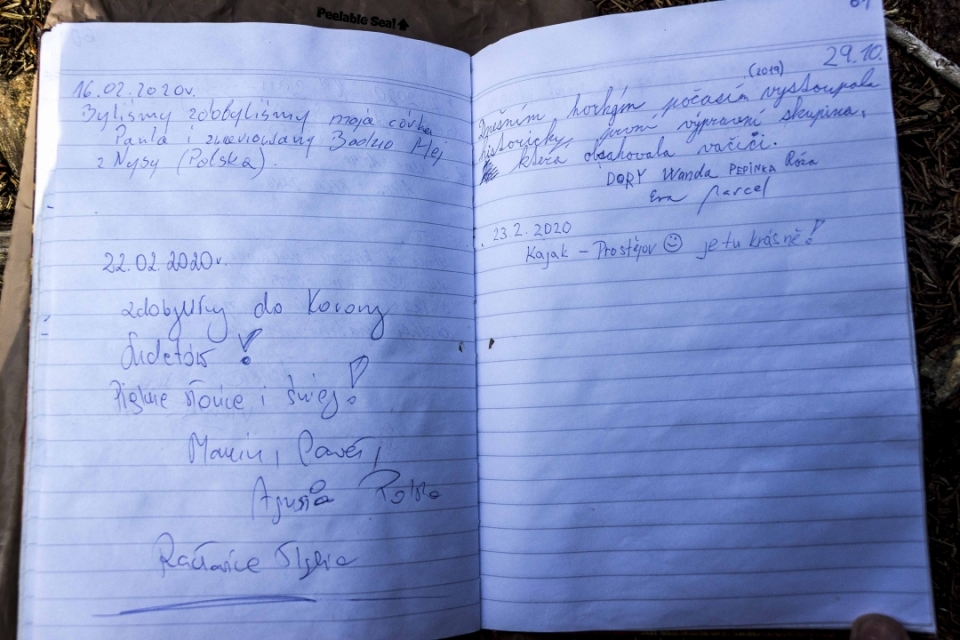 Peelable Seal
16.02.2020r.
Byliśmy zdobyliśmy moja córka
Paula i
z Nysy (Polska).
22.02.2020r.
zdobyliśmy do Korony
Sudetów!
Piękne słońce i śnieg!
Marcin, Paweł,
Agusia Polska
Racławice Śląskie
29.10.
(2019)
Dnešním horkým počasím vystoupala
historicky první výpravní skupina,
která obsahovala vačici.
DORY Wanda PEPINKA Róza
Eva Marcel
23.2.2020
Kajak - Prostějov ☺ je tu krásně!